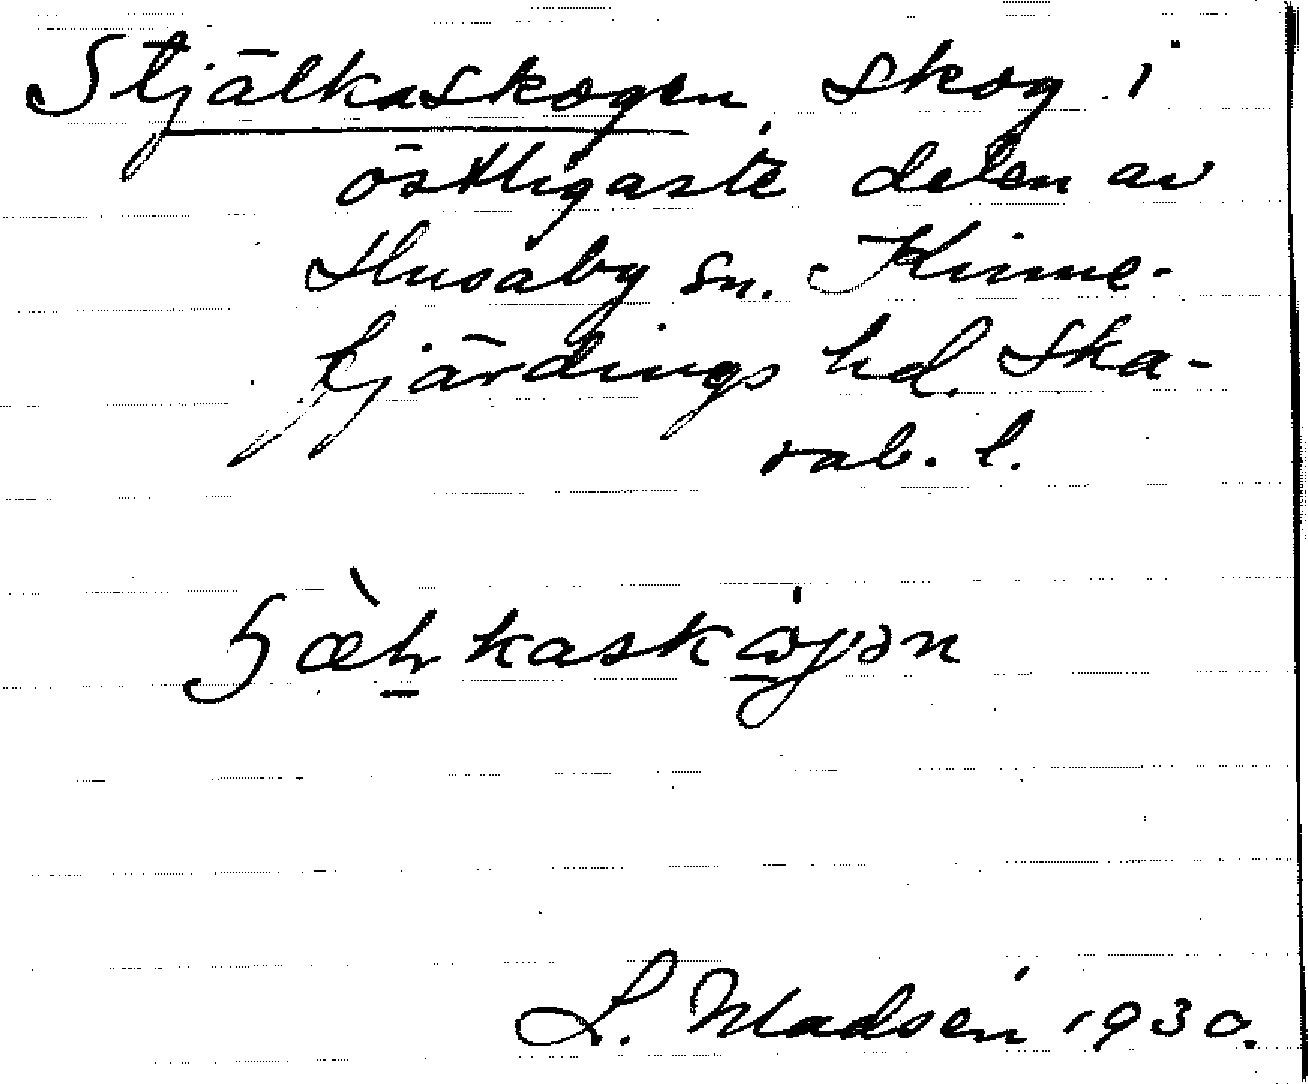 Stjälkaskogen, skog i
östligaste delen av
Husaby sn. Kinne-
fjärdings hd. Ska-
rab. l.
L. Madsén 1930.